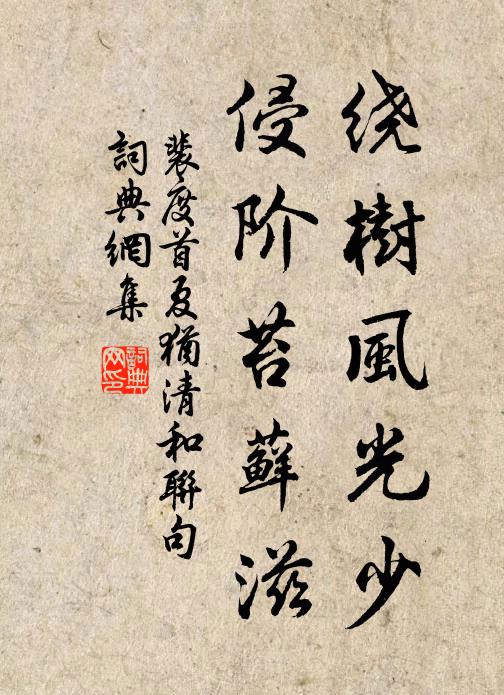 绕樹風光少
侵阶苔蘚滋
裴度首夏猶清和聯句
詞典網集
詞典
网印